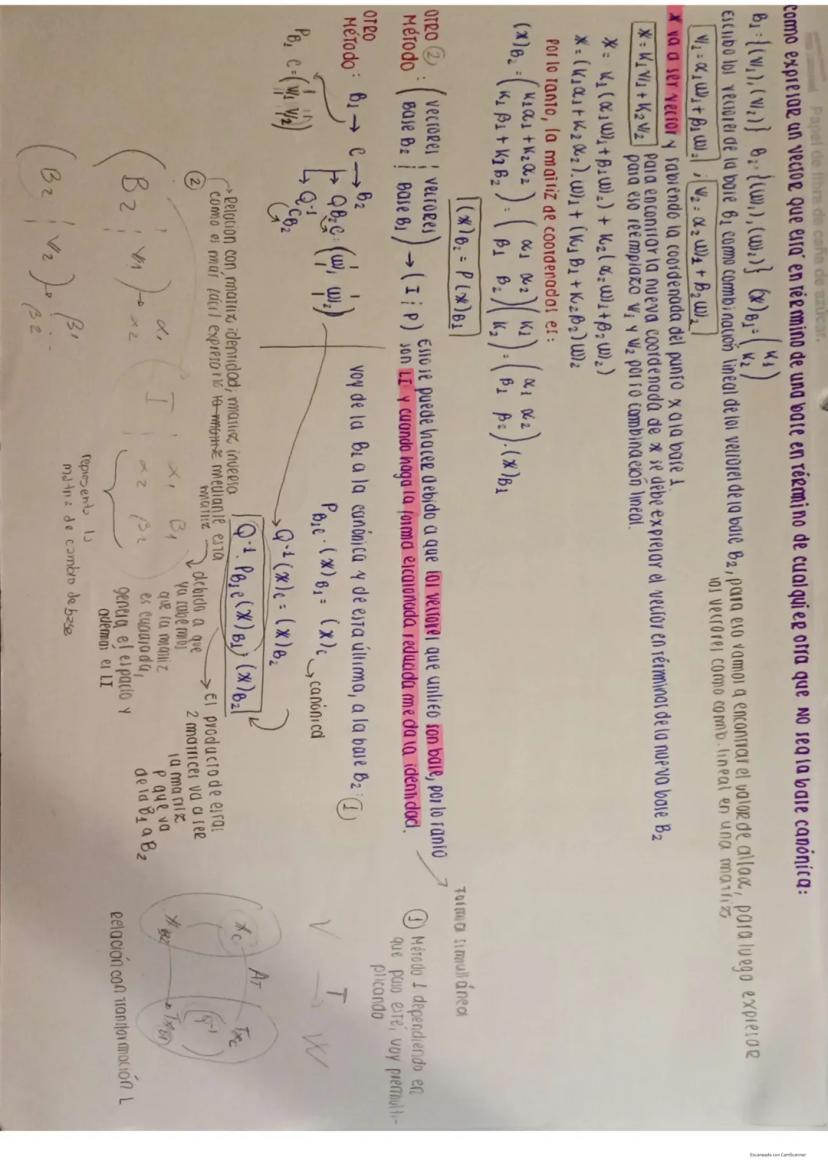 Papel de fibra de caña de azúcar.
como expresar un vector que está en término de una base en término de cualquier otra que NO sea la base canónica:
B₁ = {(v₁), (v₂)} B₂ = {(w₁), (w₂)} (x)B₁ = (K₁ K₂)
escribo los vectores de la base B₁ como combinación lineal de los vectores de la base B₂, para eso vamos a encontrar el valor de allax, para luego expresar
los vectores como comb. lineal en una matriz
v₁ = α₁w₁ + β₁w₂ ; v₂ = α₂w₁ + β₂w₂
x va a ser vector y sabiendo la coordenada del punto x a la base 1
x = K₁v₁ + K₂v₂
Para encontrar la nueva coordenada de x se debe expresar el vector en términos de la nueva base B₂
para eso reemplazo v₁ y v₂ por su combinación lineal.
x = K₁(α₁w₁ + β₁w₂) + K₂(α₂w₁ + β₂w₂)
x = (K₁α₁ + K₂α₂).w₁ + (K₁β₁ + K₂β₂)w₂
Por lo tanto, la matriz de coordenadas es:
(x)B₂ = (K₁α₁ + K₂α₂ K₁β₁ + K₂β₂) = (α₁ α₂ β₁ β₂)(K₁ K₂) = (α₁ α₂ β₁ β₂).(x)B₁
(x)B₂ = P(x)B₁
OTRO ② MÉTODO: (vectores Base B₂ ¦ vectores Base B₁) → (I ¦ P)
Esto se puede hacer debido a que los vectores que utilizo son base, por lo tanto
son LI y cuando haga la forma escalonada reducida me da la identidad.
Forma simultánea
① Método 1 dependiendo en
que paso esté, voy premulti-
plicando
OTRO MÉTODO: B₁ → C → B₂
voy de la B₁ a la canónica y de esta última, a la base B₂: ①
PB₁C = (v₁ v₂)
QB₂C = (w₁ w₂)
Q⁻¹ CB₂
PB₁C . (x)B₁ = (x)C
canónica
Q⁻¹(x)C = (x)B₂
Q⁻¹. PB₁C(x)B₁ = (x)B₂
Relación con matriz identidad, matriz inversa
como es más fácil expresarlo mediante esta
matriz
②
debido a que
ya sabemos
que la matriz
es cuadrada,
genera el espacio y
además es LI
El producto de esas
2 matrices va a ser
la matriz
P que va
de la B₁ a B₂
(B₂ ¦ v₁) → α₁ α₂
(I ¦ α₁ β₁ α₂ β₂)
representa la
matriz de cambio de base
(B₂ ¦ v₂) → β₁ β₂
V T→ W
xC AT TxC
xB₂ TxB₂
Q⁻¹
Relación con Transformación L
Escaneado con CamScanner